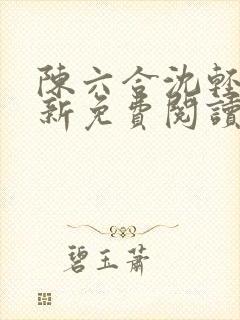 陳六合沈輕
新免費閱讀
碧玉蕭